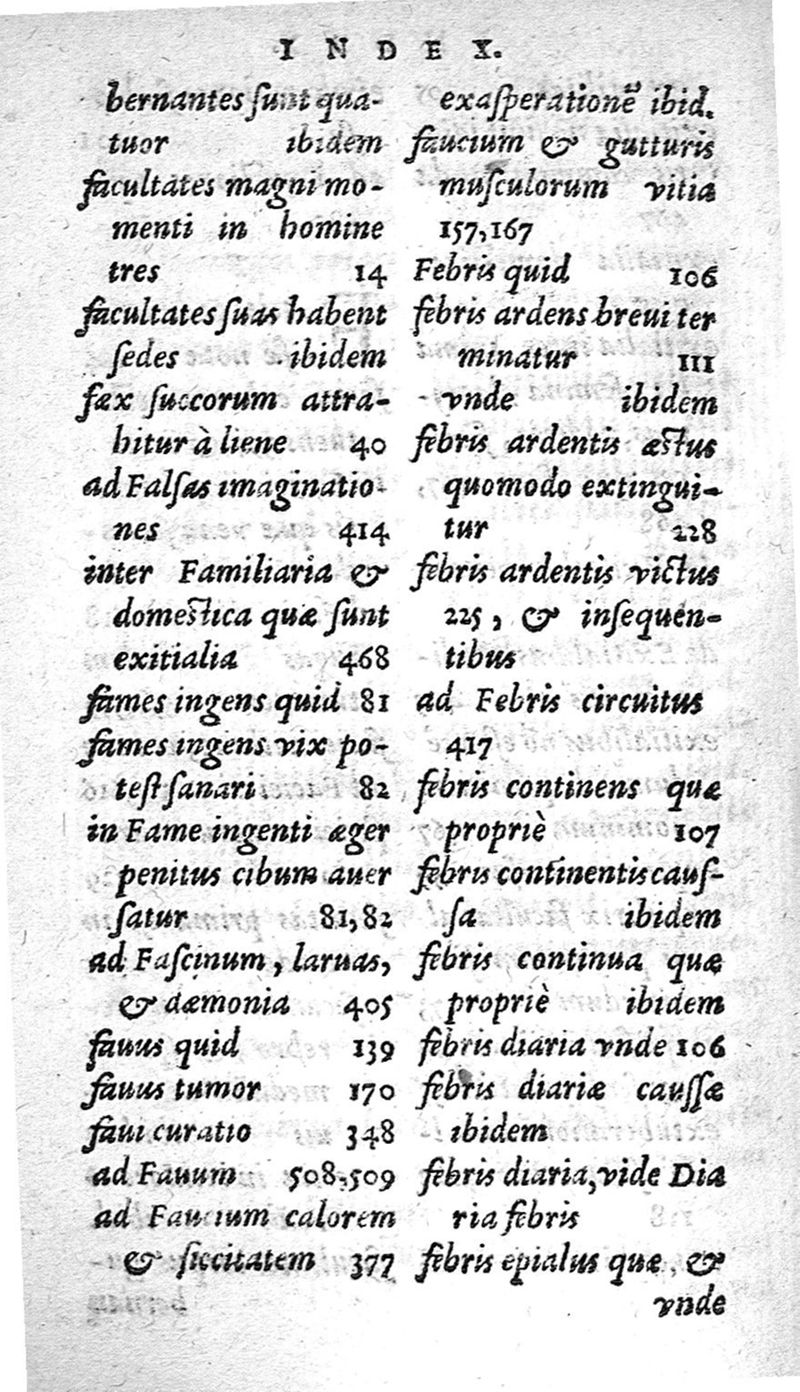 INDEX.
bernantes ſunt qua-
tuor ibidem
facultates magni mo-
menti in homine
tres 14
facultates ſuas habent
ſedes ibidem
fæx ſuccorum attra-
hitur à liene 40
ad Falſas imaginatio-
nes 414
inter Familiaria &
domeſtica quæ ſunt
exitialia 468
fames ingens quid 81
fames ingens vix po-
teſt ſanari 82
in Fame ingenti æger
penitus cibum auer
ſatur 81,82
ad Faſcinum, laruas,
& dæmonia 405
fauus quid 139
fauus tumor 170
faui curatio 348
ad Fauum 508,509
ad Faucium calorem
& ſiccitatem 377
exaſperationē ibid.
faucium & gutturis
muſculorum vitia
157,167
Febris quid 106
febris ardens breui ter
minatur 111
vnde ibidem
febris ardentis æſtus
quomodo extingui-
tur 228
febris ardentis victus
225, & inſequen-
tibus
ad Febris circuitus
417
febris continens quæ
propriè 107
febris continentis cauſ-
ſa ibidem
febris continua quæ
propriè ibidem
febris diaria vnde 106
febris diariæ cauſſæ
ibidem
febris diaria, vide Dia
ria febris
febris epialus quæ, &
vnde